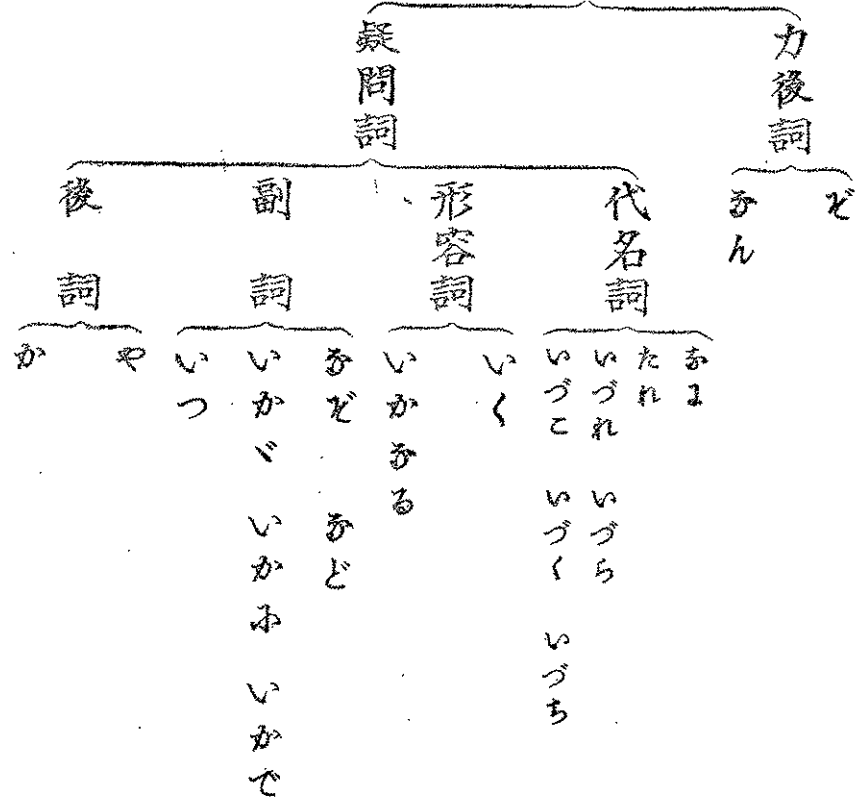 力後詞
ぞ
なん
疑問詞
代名詞
なに
たれ
いづれ いづら
いづこ いづく いづち
形容詞
いく
いかなる
副詞
なぞ など
いかゞ いかに いかで
いつ
後詞
や
か